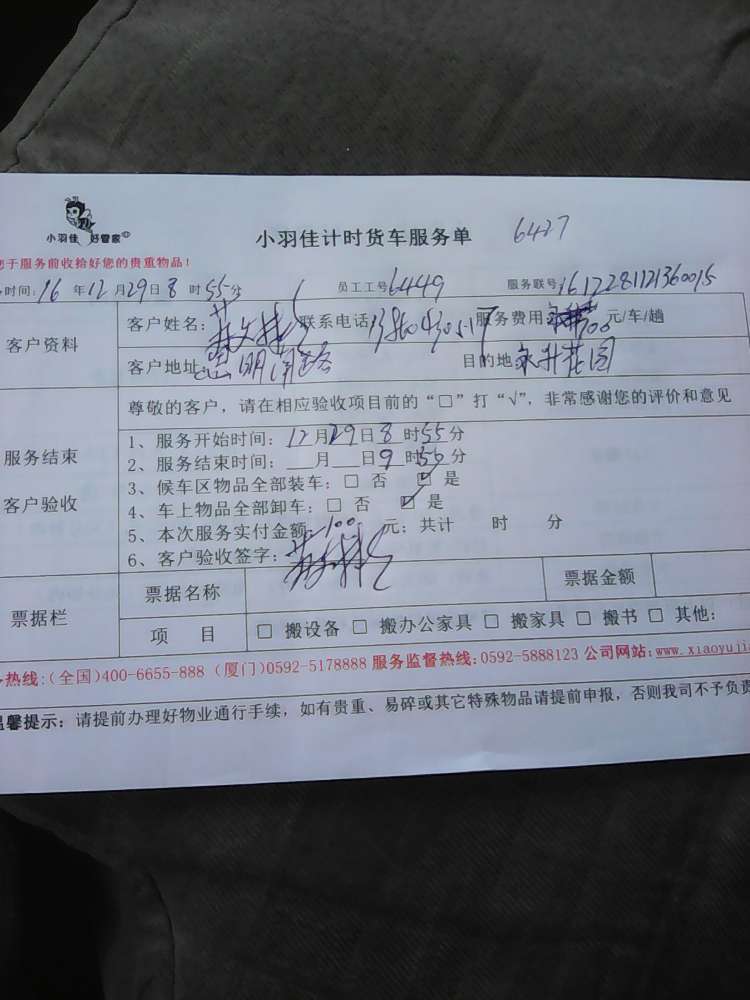 小羽佳 好管家
小羽佳计时货车服务单 6427
于服务前收拾好您的贵重物品！
时间：16年12月29日8时55分 员工工号6449 服务联号1612281121360015
客户资料
客户姓名： 联系电话 服务费用 元/车/趟
客户地址： 目的地 永升花园
服务结束
客户验收
尊敬的客户，请在相应验收项目前的“□”打“√”，非常感谢您的评价和意见
1、服务开始时间：12月29日8时55分
2、服务结束时间：___月___日9时55分
3、候车区物品全部装车：□ 否 ☑ 是
4、车上物品全部卸车：□ 否 ☑ 是
5、本次服务实付金额 100 元；共计 时 分
6、客户验收签字：
票据栏
票据名称 票据金额
项 目 □ 搬设备 □ 搬办公家具 □ 搬家具 □ 搬书 □ 其他：
热线：(全国)400-6655-888 (厦门)0592-5178888 服务监督热线：0592-5888123 公司网站：www.xiaoyuji
温馨提示：请提前办理好物业通行手续，如有贵重、易碎或其它特殊物品请提前申报，否则我司不予负责